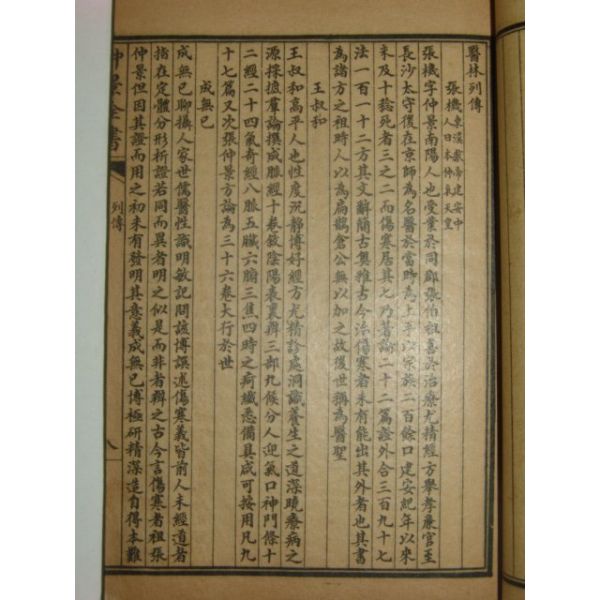 醫林列傳
張機 東漢獻帝建安中人日本仲卑天皇
張機字仲景南陽人也受業於同郡張伯祖善於治療尤精經方舉孝廉官至
長沙太守後在京師為名醫於當時為上手以宗族二百餘口建安紀年以來
未及十稔死者三之二而傷寒居其七乃著論二十二篇證外合三百九十七
法一百一十二方其文辭簡古奧雅古今治傷寒者未有能出其外者也其書
為諸方之祖時人以為扁鵲倉公無以加之故後世稱為醫聖
王叔和
王叔和高平人也性度沉靜博好經方尤精診處洞識養生之道深曉療病之
源採摭群論撰成脈經十卷敘陰陽表裏辨三部九候分人迎氣口神門條十
二經二十四氣奇經八脈五臟六腑三焦四時之痾纖悉備具咸可按用凡九
十七篇又次張仲景方論為三十六卷大行於世
成無已
成無已聊攝人家世儒醫性識明敏記問該博譔述傷寒義皆前人未經道者
指在定體分形析證若同而異者明之似是而非者辨之古今言傷寒者祖張
仲景但因其證而用之初未有發明其意義成無已博極研精深造自得本難
仲景全書
列傳
八